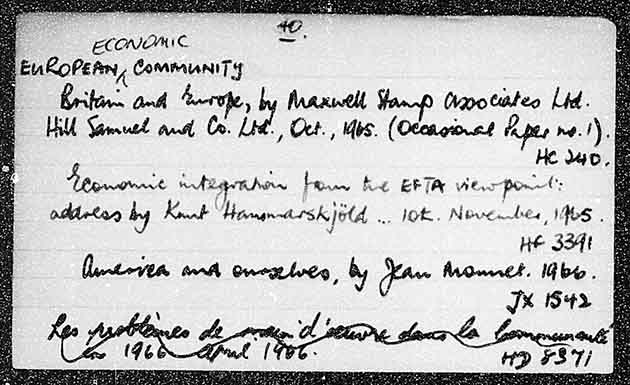 40.
ECONOMIC
EUROPEAN ^ COMMUNITY
Britain and Europe, by Maxwell Stamp Associates Ltd.
Hill Samuel and Co. Ltd., Oct., 1965. (Occasional Paper no. 1).
HC 240.
Economic integration from the EFTA viewpoint:
address by Knut Hammarskjöld ... 10th. November, 1965.
HF 3391
America and ourselves, by Jean Monnet. 1966.
JX 1542
Les problèmes de main d'œuvre dans la Communauté
en 1966 April 1966.
HD 8371